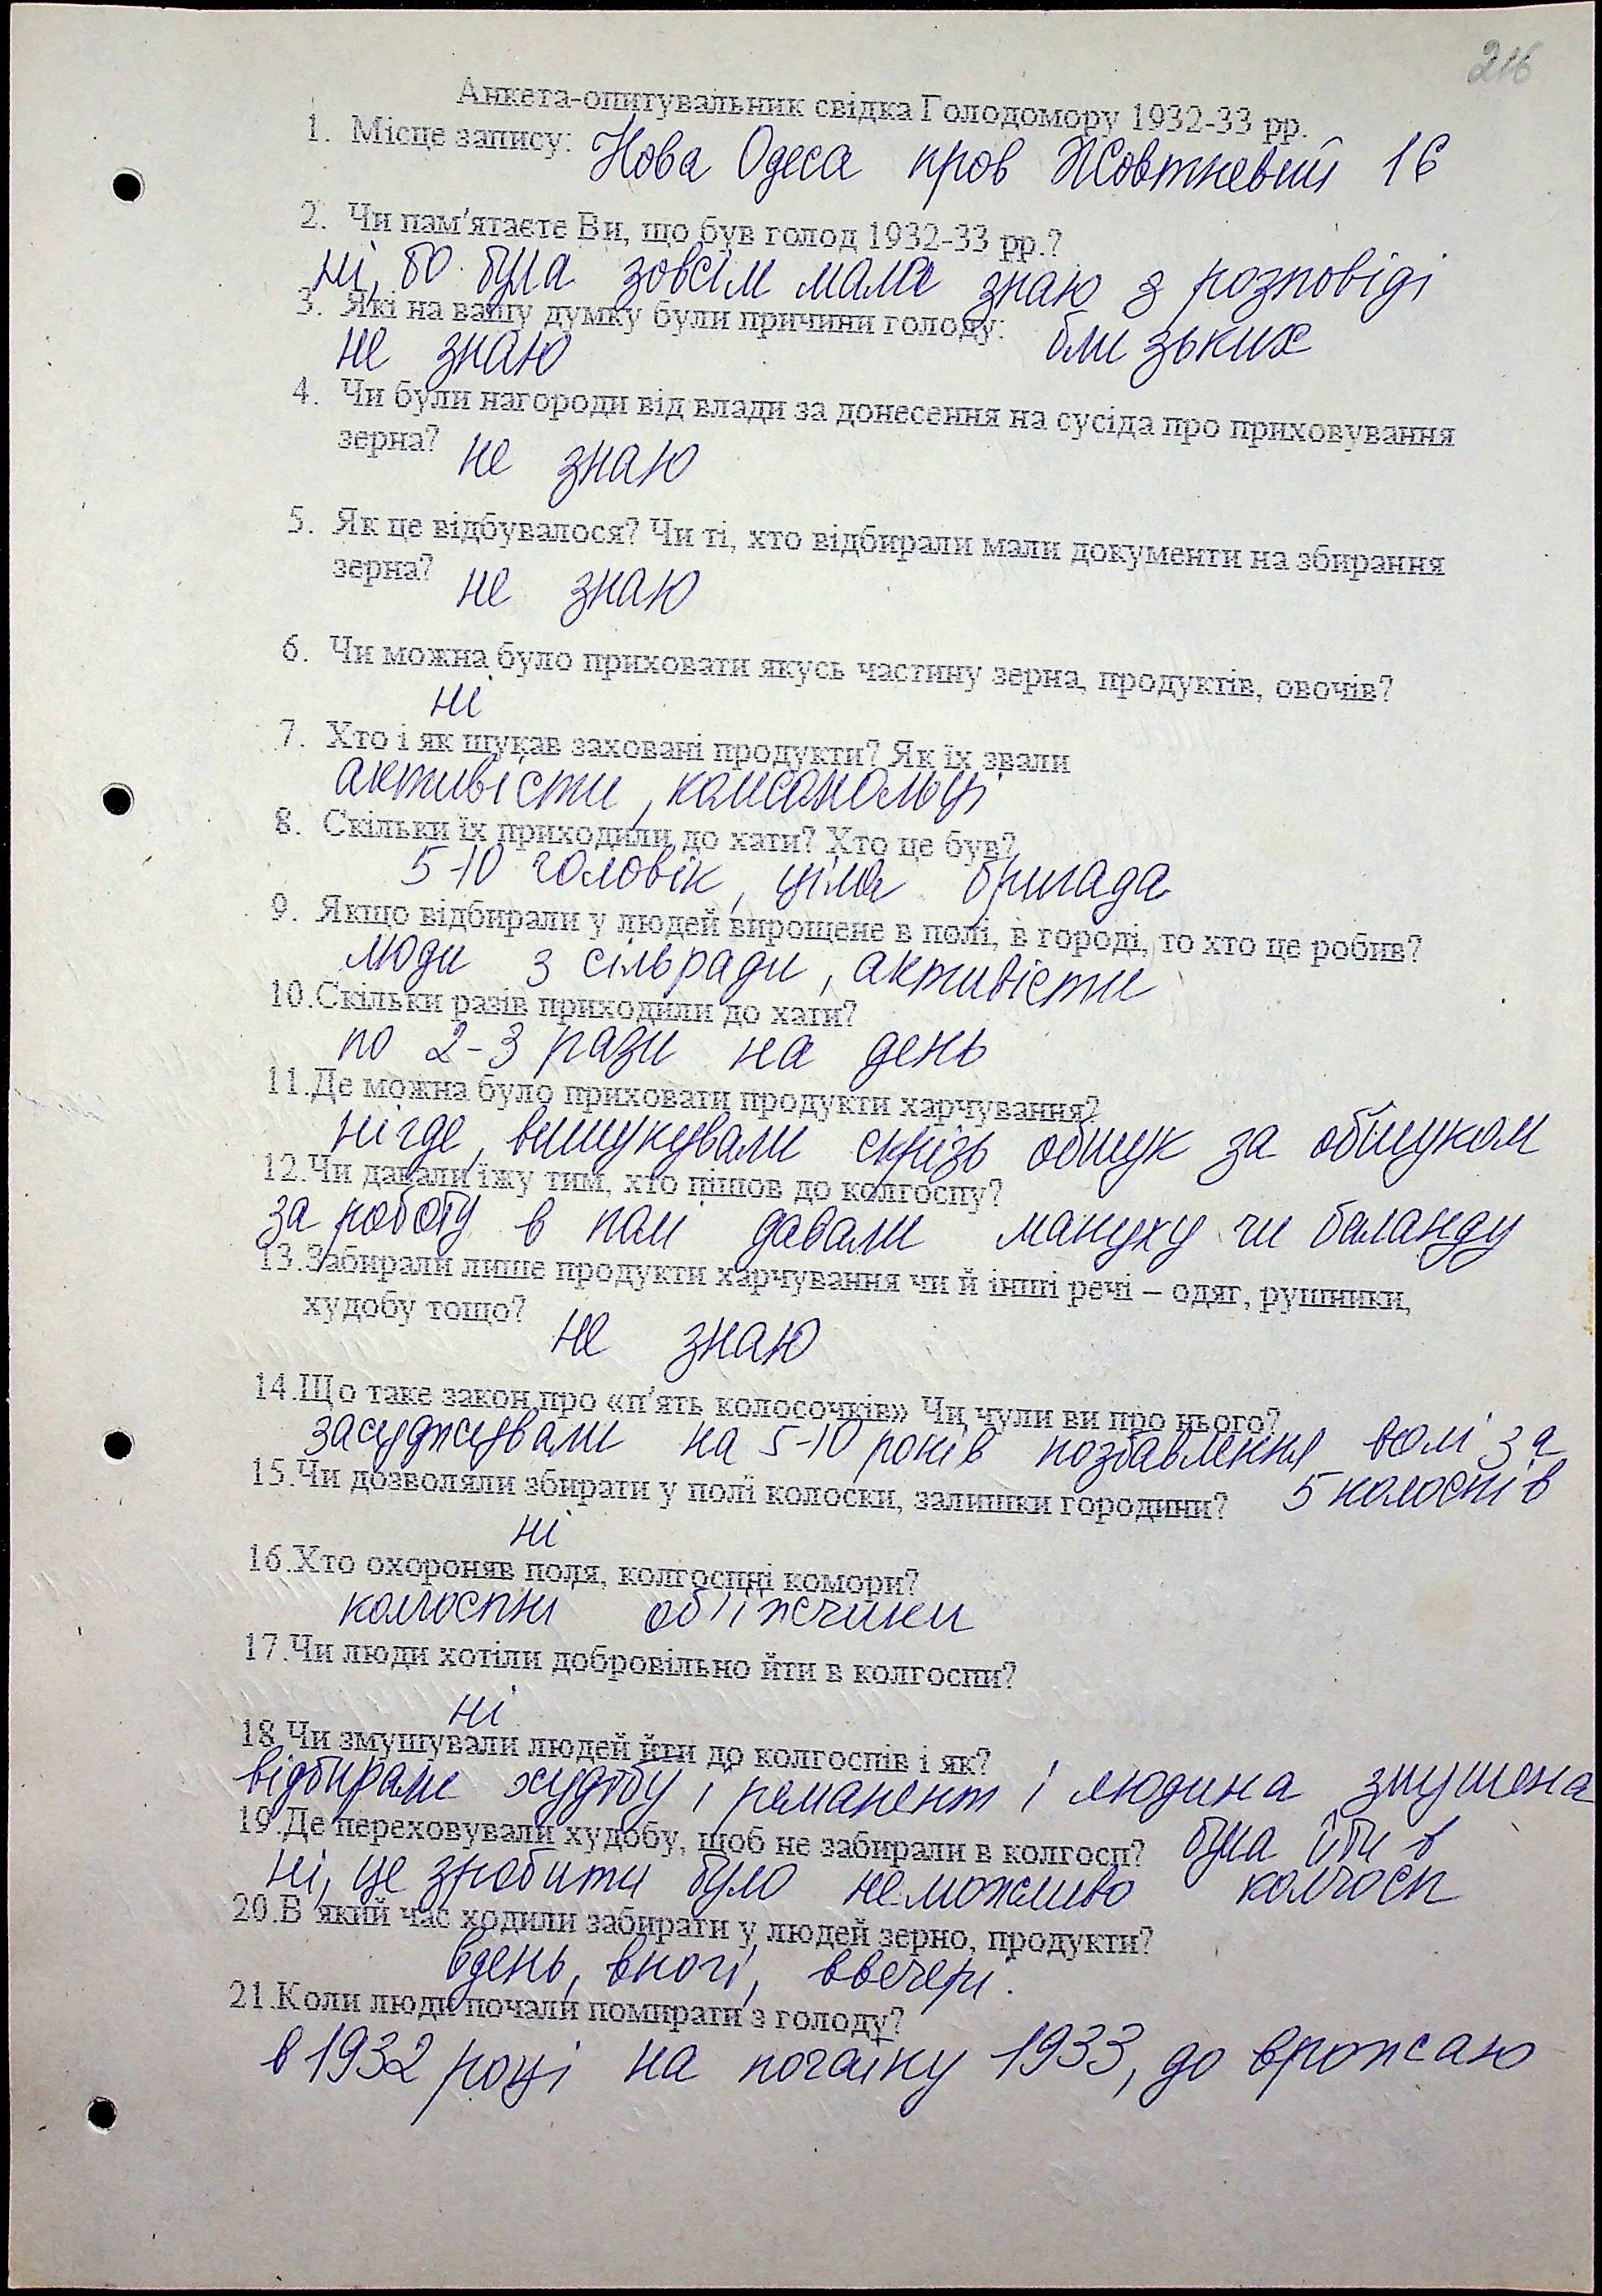 216
Анкета-опитувальник свідка Голодомору 1932-33 рр.
1. Місце запису: Нова Одеса пров Жовтневий 16
2. Чи пам'ятаєте Ви, що був голод 1932-33 рр.?
ні, бо була зовсім мала знаю з розповіді
3. Які на вашу думку були причини голоду: близьких
не знаю
4. Чи були нагороди від влади за донесення на сусіда про приховування
зерна? не знаю
5. Як це відбувалося? Чи ті, хто відбирали мали документи на збирання
зерна? не знаю
6. Чи можна було приховати якусь частину зерна, продуктів, овочів?
ні
7. Хто і як шукав заховані продукти? Як їх звали
активісти, комсомольці
8. Скільки їх приходили до хати? Хто це був?
5-10 чоловік, ціла бригада
9. Якщо відбирали у людей вирощене в полі, в городі, то хто це робив?
люди з сільради, активісти
10.Скільки разів приходили до хати?
по 2-3 рази на день
11.Де можна було приховати продукти харчування?
нігде, вишукували скрізь обшук за обшуком
12.Чи давали їжу тим, хто пішов до колгоспу?
за роботу в полі давали макуху чи баланду
13.Забирали лише продукти харчування чи й інші речі – одяг, рушники,
худобу тощо? не знаю
14.Що таке закон про «п'ять колосочків» Чи чули ви про нього?
засуджували на 5-10 років позбавлення волі за
15.Чи дозволяли збирати у полі колоски, залишки городини? 5 колосків
ні
16.Хто охороняв поля, колгоспні комори?
колгоспні об'їжчики
17.Чи люди хотіли добровільно йти в колгоспи?
ні
18.Чи змушували людей йти до колгоспів і як?
відбирали худобу, реманент і людина змушена
19.Де переховували худобу, щоб не забирали в колгосп? була йти в
ні, це зробити було неможливо колгосп
20.В який час ходили забирати у людей зерно, продукти?
вдень, вночі, ввечері.
21.Коли люди почали помирати з голоду?
в 1932 році на початку 1933, до врожаю